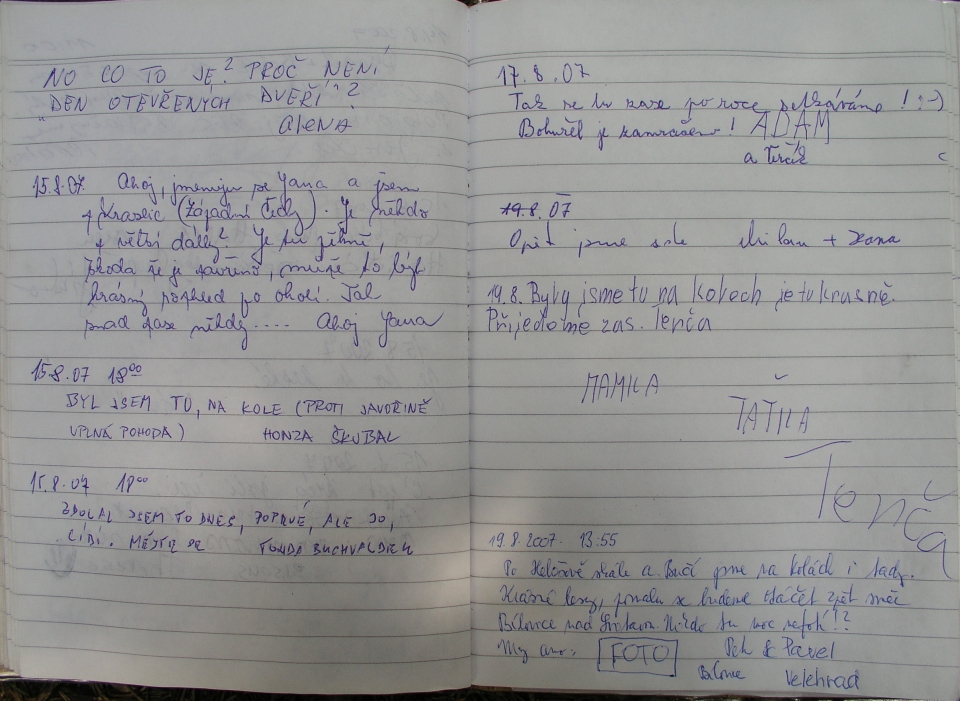 NO CO TO JE? PROČ NENÍ
"DEN OTEVŘENÝCH DVEŘÍ"?
Alena
15.8.07 Ahoj, jmenuju se Jana a jsem
z Kraslic (Západní Čechy). Je někdo
z větší dálky? Je tu pěkně,
škoda že je zavřeno, musí to být
krásný pohled po okolí. Tak
snad zase někdy.... Ahoj Jana
15.8.07 18⁰⁰
BYL JSEM TU, NA KOLE (PROTI JAVOŘINĚ
UPLNÁ POHODA) HONZA ŠKUBAL
15.8.07 18⁰⁰
ZDOLAL JSEM TO DNES, POPRVÉ, ALE JO,
LÍBÍ. MĚJTE SE TONDA
17.8.07
Tak se tu zase po roce setkáváme! :-)
Bohužel je zamračeno! ADAM
a Terčík
19.8.07
Opět jsme zde Milan + Hana
19.8. Byly jsme tu na kolech je tu krasně.
Přijedome zas. Terča
MAMKA
TAŤKA
Terča
19.8.2007 13:55
Po Helišově skále a Bučí jsme na kolách i tady.
Krásné lesy, pomalu se budeme stáčet zpět směr
Bílovice nad Svitavou. Nikdo tu moc nefotí!?
My ano: FOTO Petr & Pavel
Bílovice Velehrad